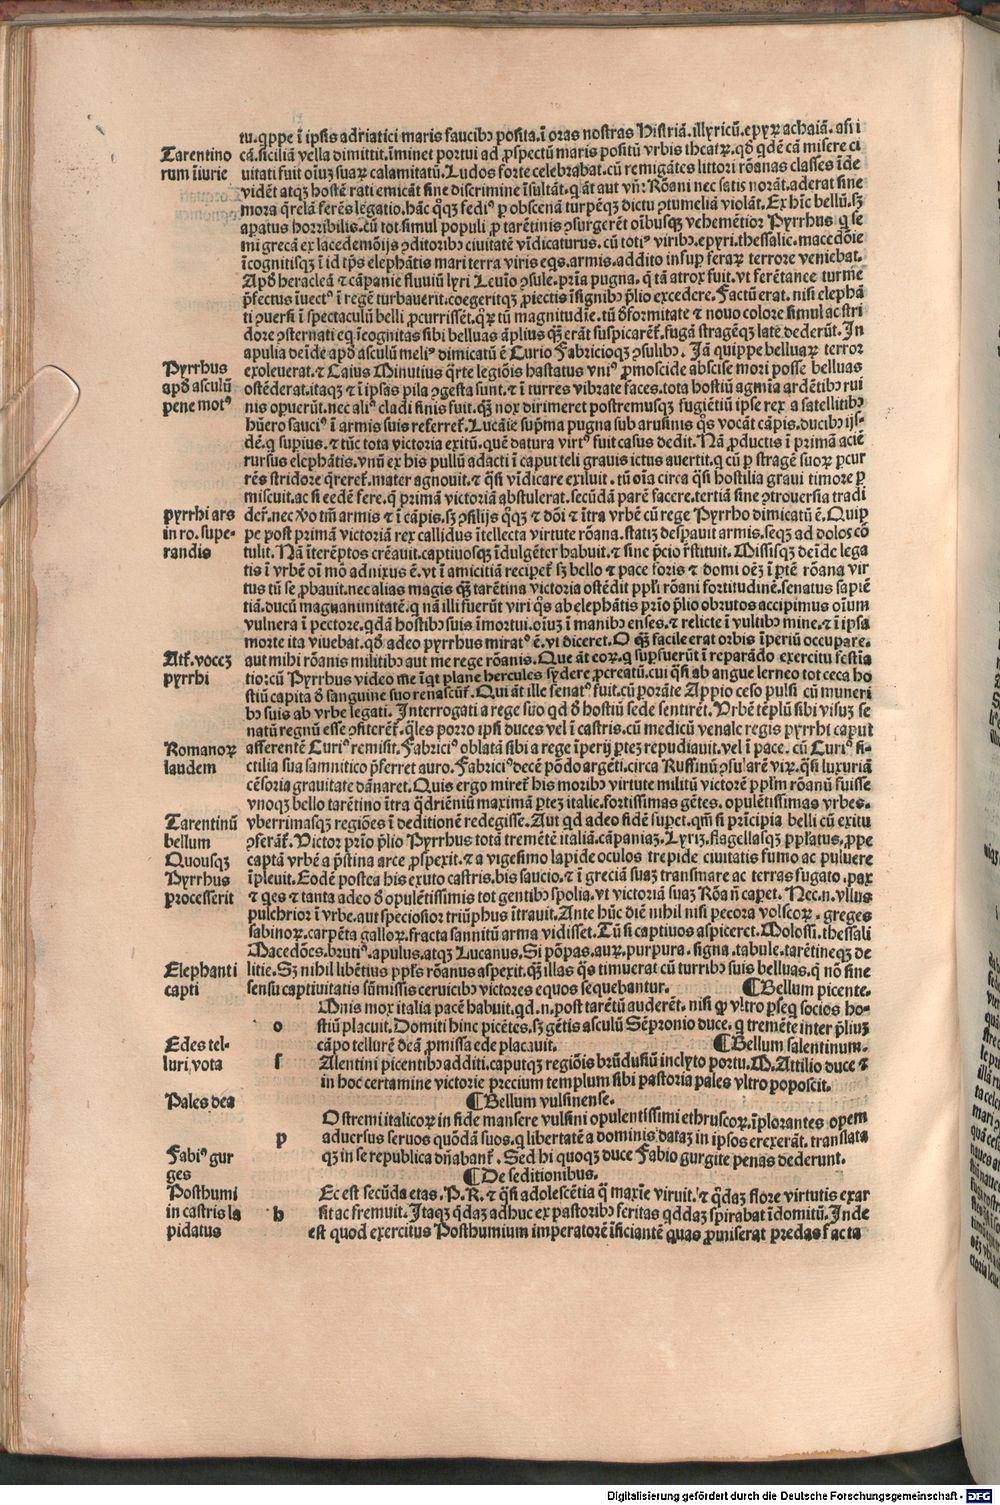 tu. q̄ppe ī ipsis adriatici maris faucibꝫ posita. ī oras nostras Histriā. illyricū. epyꝝ achaiā. asi i
Tarentino
rum īiurie
cā. siciliā vella dimittit. iminet portui ad ꝓspectū maris positū vrbis theatꝝ. qd̄ qdē cā misere ci
uitati fuit oīuꝫ suaꝝ calamitatū. Ludos forte celebrabat. cū remigātes littori rōanas classes īde
vidēt atqꝫ hostē rati emicāt sine discrimine īsultāt. q āt aut vn̄: Rōani nec satis norāt. aderat sine
mora q̄relā ferēs legatio. hāc qꝫ fediꝰ ꝑ obscenā turpēqꝫ dictu ꝯtumeliā violāt. Ex hīc bellū. sꝫ
apatus horribilis. cū tot simul populi ꝓ tarētinis ꝯsurgerēt oībusqꝫ vehemētior Pyrrhus q se
mi grecā ex lacedemōijs ꝯditoribꝫ ciuitatē vīdicaturus. cū totiꝰ viribꝫ. epyri. thessalie. macedōie
īcognitisqꝫ ī id tp̄s elephātis mari terra viris eqs. armis. addito insup feraꝝ terrore veniebat.
Apd̄ heracleā ⁊ cāpanie fluuiū lyri Leuīo ꝯsule. prīa pugna. q̄ tā atrox fuit. vt ferētance turme
p̄fectus īuectꝰ ī regē turbauerit. coegeritqꝫ ꝓiectis īsignibꝫ p̄lio excedere. Factū erat. nisi elephā
ti ꝯuersi ī spectaculū belli ꝓcurrissēt. qꝝ tū magnitudīe. tū ꝺformitate ⁊ nouo colore simul ac stri
dore ꝯsternati eq īcognitas sibi belluas āplius qꝫ erāt suspicarēt̄. fugā stragēqꝫ late dederūt. In
apulia deīde apd̄ asculū meliꝰ dimicatū ē Curio Fabricioqꝫ ꝯsulibꝫ. Jā quippe belluaꝝ terror
Pyrrhus
apd̄ asculū
pene motꝰ
exoleuerat. ⁊ Caius Minutius q̄rte legiōis hastatus vniꝰ ꝓmoscide abscise mori posse belluas
ostēderat. itaqꝫ ⁊ ī ipsas pila ꝯgesta sunt. ⁊ ī turres vibrate faces. tota hostiū agmīa ardētibꝫ rui
nis opuerūt. nec aliꝰ cladi finis fuit. qꝫ nox dirimeret postremusqꝫ fugiētiū ipse rex a satellitibꝫ
hūero sauciꝰ ī armis suis referret̄. Lucāie sup̄ma pugna sub arusinis qs vocāt cāpis. ducibꝫ ijs-
dē. q supius. ⁊ tūc tota victoria exitū. quē datura virtꝰ fuit casus dedit. Nā ꝓductis ī primā aciē
rursus elephātis. vnū ex his pullū adacti ī caput teli grauis ictus auertit. q cū ꝑ stragē suoꝝ ꝑcur
rēs stridore q̄reret̄. mater agnouit. ⁊ q̄si vīdicare exiluit. tū oīa circa q̄si hostilia graui timore ꝑ
miscuit. ac si eedē fere. q̄ primā victoriā abstulerat. secūdā parē facere. tertiā sine ꝯtrouersia tradi
pyrrhi ars
in ro. supe-
randis
der̄t. nec vo tm̄ armis ⁊ ī cāpis. sꝫ ꝯsilijs qꝫ ⁊ dōi ⁊ ītra vrbē cū rege Pyrrho dimicatū ē. Quip
pe post primā victoriā rex callidus ītellecta virtute rōana. statiꝫ despauit armis. seqꝫ ad dolos cō
tulit. Nā īterēptos crēauit. captiuosqꝫ īdulgēter habuit. ⁊ sine p̄cio īstituit. Missisqꝫ deīde lega
tis ī vrbē oī mō adnixus ē. vt ī amicitiā recipet̄. sꝫ bello ⁊ pace foris ⁊ domi oēꝫ ī ꝑtē rōana vir
tus tū se ꝓbauit. nec alias magis qꝫ tarētina victoria ostēdit ppl̄i rōani fortitudinē. senatus sapiē
tiā. ducū magnanimitatē. q nā illi fuerūt viri qs ab elephātis prīo p̄lio obrutos accipimus oīum
vulnera ī pectore. qdā hostibꝫ suis īmortui. oīuꝫ ī manibꝫ enses. ⁊ relicte ī vultibꝫ mine. ⁊ ī ipsa
morte ira viuebat. qd̄ adeo pyrrhus miratꝰ ē. vi diceret. O qꝫ facile erat orbis īperiū occupare.
Atꝶ. voceꝫ
pyrrhi
aut mihi rōanis militibꝫ aut me rege rōanis. Que āt eoꝝ. q supfuerūt ī reparādo exercitu festīa
tio: cū Pyrrhus video me īqt plane hercules sydere ꝓcreatū. cui q̄si ab angue lerneo tot ceca ho
stiū capita ꝺ sanguine suo renascūt̄. Qui āt ille senatꝰ fuit. cū ꝑorāte Appio ceso pulsi cū muneri
bꝫ suis ab vrbe legati. Interrogati a rege suo qd ꝺ hostiū sede sentirēt. Vrbē tēplū sibi visuꝫ se
natū regnū esse ꝯfiteret̄. q̄les porro ipsi duces vel ī castris. cū medicū venale regis pyrrhi caput
Romanoꝝ
laudem
afferentē Curiꝰ remisit. Fabriciꝰ oblatā sibi a rege īperij ꝑteꝫ repudiauit. vel ī pace. cū Curiꝰ fi-
ctilia sua samnitico p̄ferret auro. Fabriciꝰ decē pōdo argēti. circa Ruffinū ꝯsularē viꝝ. q̄si luxuriā
cēsoria grauitate dānaret. Quis ergo miret̄ his moribꝫ virtute militū victorē ppl̄m rōanū fuisse
vnoqꝫ bello tarētino ītra q̄driēniū maximā ꝑteꝫ italie. fortissimas gētes. opulētissimas vrbes.
Tarentinū
bellum
Quousqꝫ
Pyrrhus
processerit
vberrimasqꝫ regiōes ī deditionē redegisse. Aut qd adeo fidē supet. qm̄ si prīcipia belli cū exitu
ꝯferāt̄. Victor prīo p̄lio Pyrrhus totā tremētē italiā. cāpaniaꝫ. Lyriꝫ. flagellasqꝫ ppl̄atus. ꝓpe
captā vrbē a p̄stina arce ꝓspexit. ⁊ a vigesimo lapide oculos trepide ciuitatis fumo ac puluere
īpleuit. Eodē postea his exuto castris. bis saucio. ⁊ ī greciā suaꝫ transmare ac terras fugato. pax
⁊ qes ⁊ tanta adeo ꝺ opulētissimis tot gentibꝫ spolia. vt victoriā suaꝫ Rōa n̄ capet. Nec. n. vllus
pulchrior ī vrbē. aut speciosior triūphus ītrauit. Ante hūc diē nihil nisi pecora volscoꝝ. greges
sabinoꝝ. carpēta galloꝝ. fracta sannitū arma vidisset. Tū si captiuos aspiceret. Molossi. thessali
Macedōes. brutiꝰ. apulus. atqꝫ Lucanus. Si pōpas. auꝝ. purpura. signa. tabule. tarētineqꝫ de
Elephanti
capti
litie. Sꝫ nihil libētius ppl̄s rōanus aspexit. qꝫ illas q̄s timuerat cū turribꝫ suis belluas. q̄ nō sine
sensu captiuitatis sūmissis ceruicibꝫ victores equos sequebantur. ¶ Bellum picente.
Mnis mox italia pacē habuit. qd. n. post tarētū auderēt. nisi ꝙ vltro ꝑseq socios ho-
o
stiū placuit. Domiti hinc picētes. sꝫ gētis asculū Sēpronio duce. q tremēte inter p̄liuꝫ
Edes tel-
luri, vota
cāpo tellurē ꝺeā ꝓmissa ede placauit. ¶ Bellum salentinum.
s
Alentini picentibꝫ additi. caputqꝫ regiōis brūdusiū inclyto portu. M. Attilio duce ⁊
in hoc certamine victorie precium templum sibi pastoria pales vltro poposcit.
Pales dea
¶ Bellum vulsinense.
O stremi italicoꝝ in fide mansere vulsini opulentissimi ethruscoꝝ. īplorantes opem
p
aduersus seruos quōdā suos. q libertatē a dominis dataꝫ in ipsos erexerāt. translata
Fabiꝰ gur
ges
qꝫ in se republica dn̄abant̄. Sed hi quoqꝫ duce Fabio gurgite penas dederunt.
¶ De seditionibus.
Posthumi
in castris la
pidatus
Ec est secūda etas. P. R. ⁊ q̄si adolescētia q̄ maxīe viruit. ⁊ q̄daꝫ flore virtutis exar
h
sit ac fremuit. Itaqꝫ q̄daꝫ adhuc ex pastoribꝫ feritas qddaꝫ spirabat īdomitū. Inde
est quod exercitus Posthumium imperatorē īficiantē quas ꝓmiserat predas facta
Digitalisierung gefördert durch die Deutsche Forschungsgemeinschaft - DFG